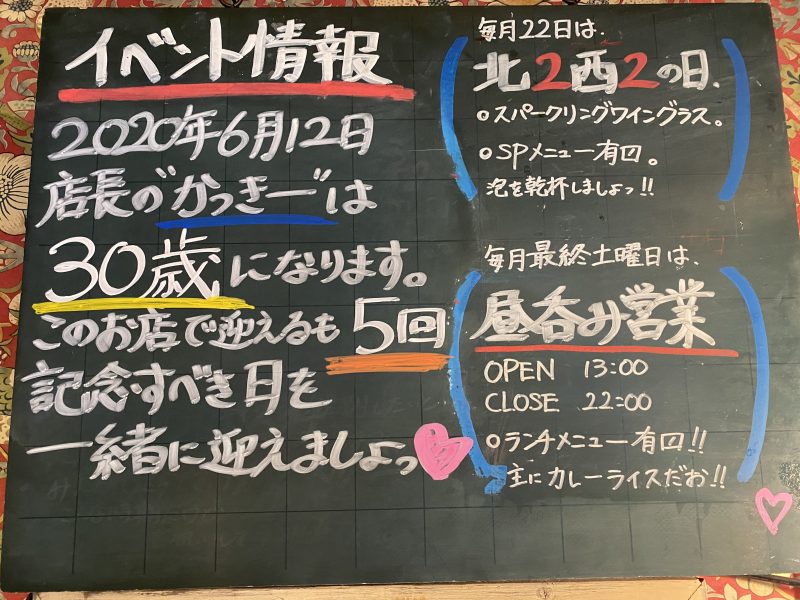 イベント情報
2020年6月12日
店長の"かっきー"は
30歳になります。
このお店で迎えるも5回
記念すべき日を
一緒に迎えましょっ
毎月22日は、
北2西2の日、
○スパークリングワイングラス。
○SPメニュー有回。
泡を乾杯しましょっ!!
毎月最終土曜日は、
昼呑み営業
OPEN 13:00
CLOSE 22:00
○ランチメニュー有回!!
主にカレーライスだお!!